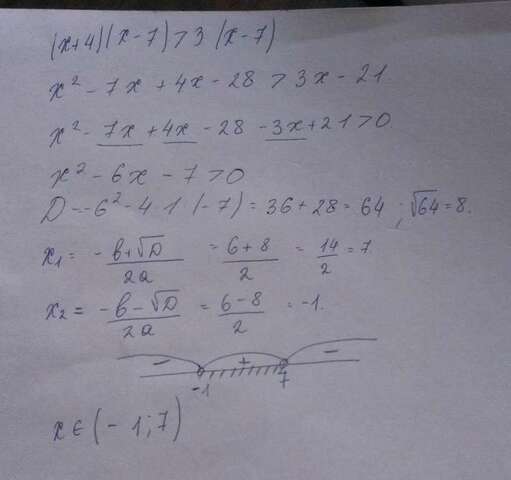 (x+4)(x-7)>3(x-7)
x² - 7x + 4x - 28 > 3x - 21
x² - 7x + 4x - 28 - 3x + 21 > 0
x² - 6x - 7 > 0
D = -6² - 4·1(-7) = 36 + 28 = 64; √64 = 8.
x₁ = (-b+√D)/2a = (6+8)/2 = 14/2 = 7.
x₂ = (-b-√D)/2a = (6-8)/2 = -1.
- + -
-1 7
x ∈ (-1; 7)